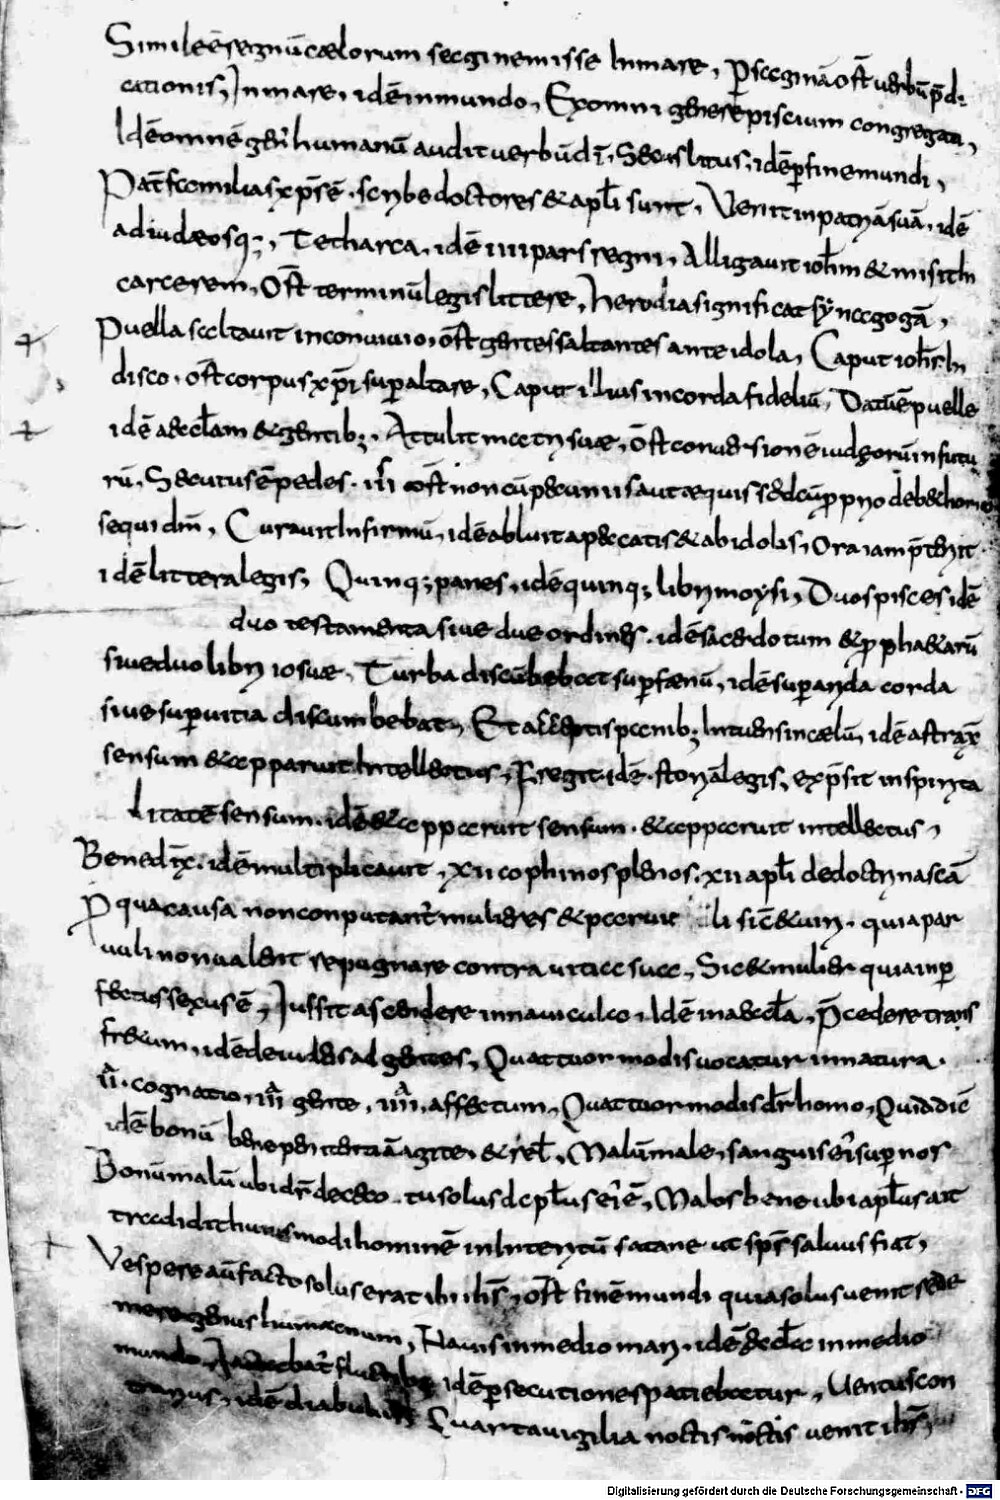 Simile ē regnū cælorum saginę missę In mare, p saginā oft̄ uerbū p̄di
cationis, In mare, idē in mundo, Ex omni genere piscium congreganti,
Idē omnē gen' humanū audit uerbū dī, Secus litus, idē p finem mundi,
Pat̄ familias xp̄s ē, scribe doctores & apl̄i sunt, Uenit in patriā suā, idē
ad iudæosq;, Tetharca, idē iiii pars regni, Alligauit ioh̄m & misit In
carcerem, oft̄ terminū legis littere, herodia significat synagogā,
Puella saltauit in conuiuio, oft̄ gentes saltantes ante idola, Caput ioh̄s In
disco, oft̄ corpus xp̄i super altare, Caput illius in corda fideliū, Datū ē puelle
idē aeccl̄am & gentib;, Attulit matri suæ, oft̄ conuersionē iudeorū in futu
rū, Secutus ē pedes, oft̄ non cū pecuniis aut æquis sed cū pprio deb& homo
sequi dn̄m, Curauit Infirmū, idē abluit a peccatis & ab idolis, Ora iam p̄terit
idē littera legis, Quinq; panes, idē quinq; libri moysi, Duos pisces idē
duo testamenta siue due ordines, idē sacerdotum & pphetarū
siue duo libri iosuæ, Turba discūbebat sup fænū, idē sup arida corda
siue sup uitia discumbebat, Et acceptis panib; Intuens in cælū, idē astrax̄
sensum & apparuit Intellectus, Fregit, idē storiā legis, exp̄sit in spirita
litatē sensum, idē & apparuit sensum, & apparuit intellectus,
Benedix̄, idē multiplicauit, xii cophinos plenos, xii apl̄i de doctrina scā
P qua causa non conputant' mulieres & paruuli sic̄ & uiri, quia par
uuli non ualent repugnare contra uitia sua, Sic & mulier quia inp
fectus sexus ē, Iussit ascendere in nauicula, Idē in aeccl̄a, P̄cedere trans
fr&um, idē de iudeis ad gentes, Quattuor modis uocatur in natura,
ii, cognatio, iii gente, iiii, affectum, Quattuor modis dr̄ homo,
idē bonū bene penitentiā agite, & rel̄, Malū male, sanguis ei' sup nos
Bonū malū ubi dr̄ de deo, tu solus Malos bene ubi apl̄us ait
tradidit huius modi hominē in Interitū satane ut sps̄ saluus fiat,
Vespere aū facto solus erat ibi ih̄s, oft̄ finē mundi quia solus uenit
genus humanum, Nauis in medio mari, idē aeccl̄a in medio
mundo, Iactebat' fluctib; idē p secutiones patiebatur, Uentus con
trarius, idē diabulus Quarta uigilia noctis uenit ih̄s,
Digitalisierung gefördert durch die Deutsche Forschungsgemeinschaft - DFG